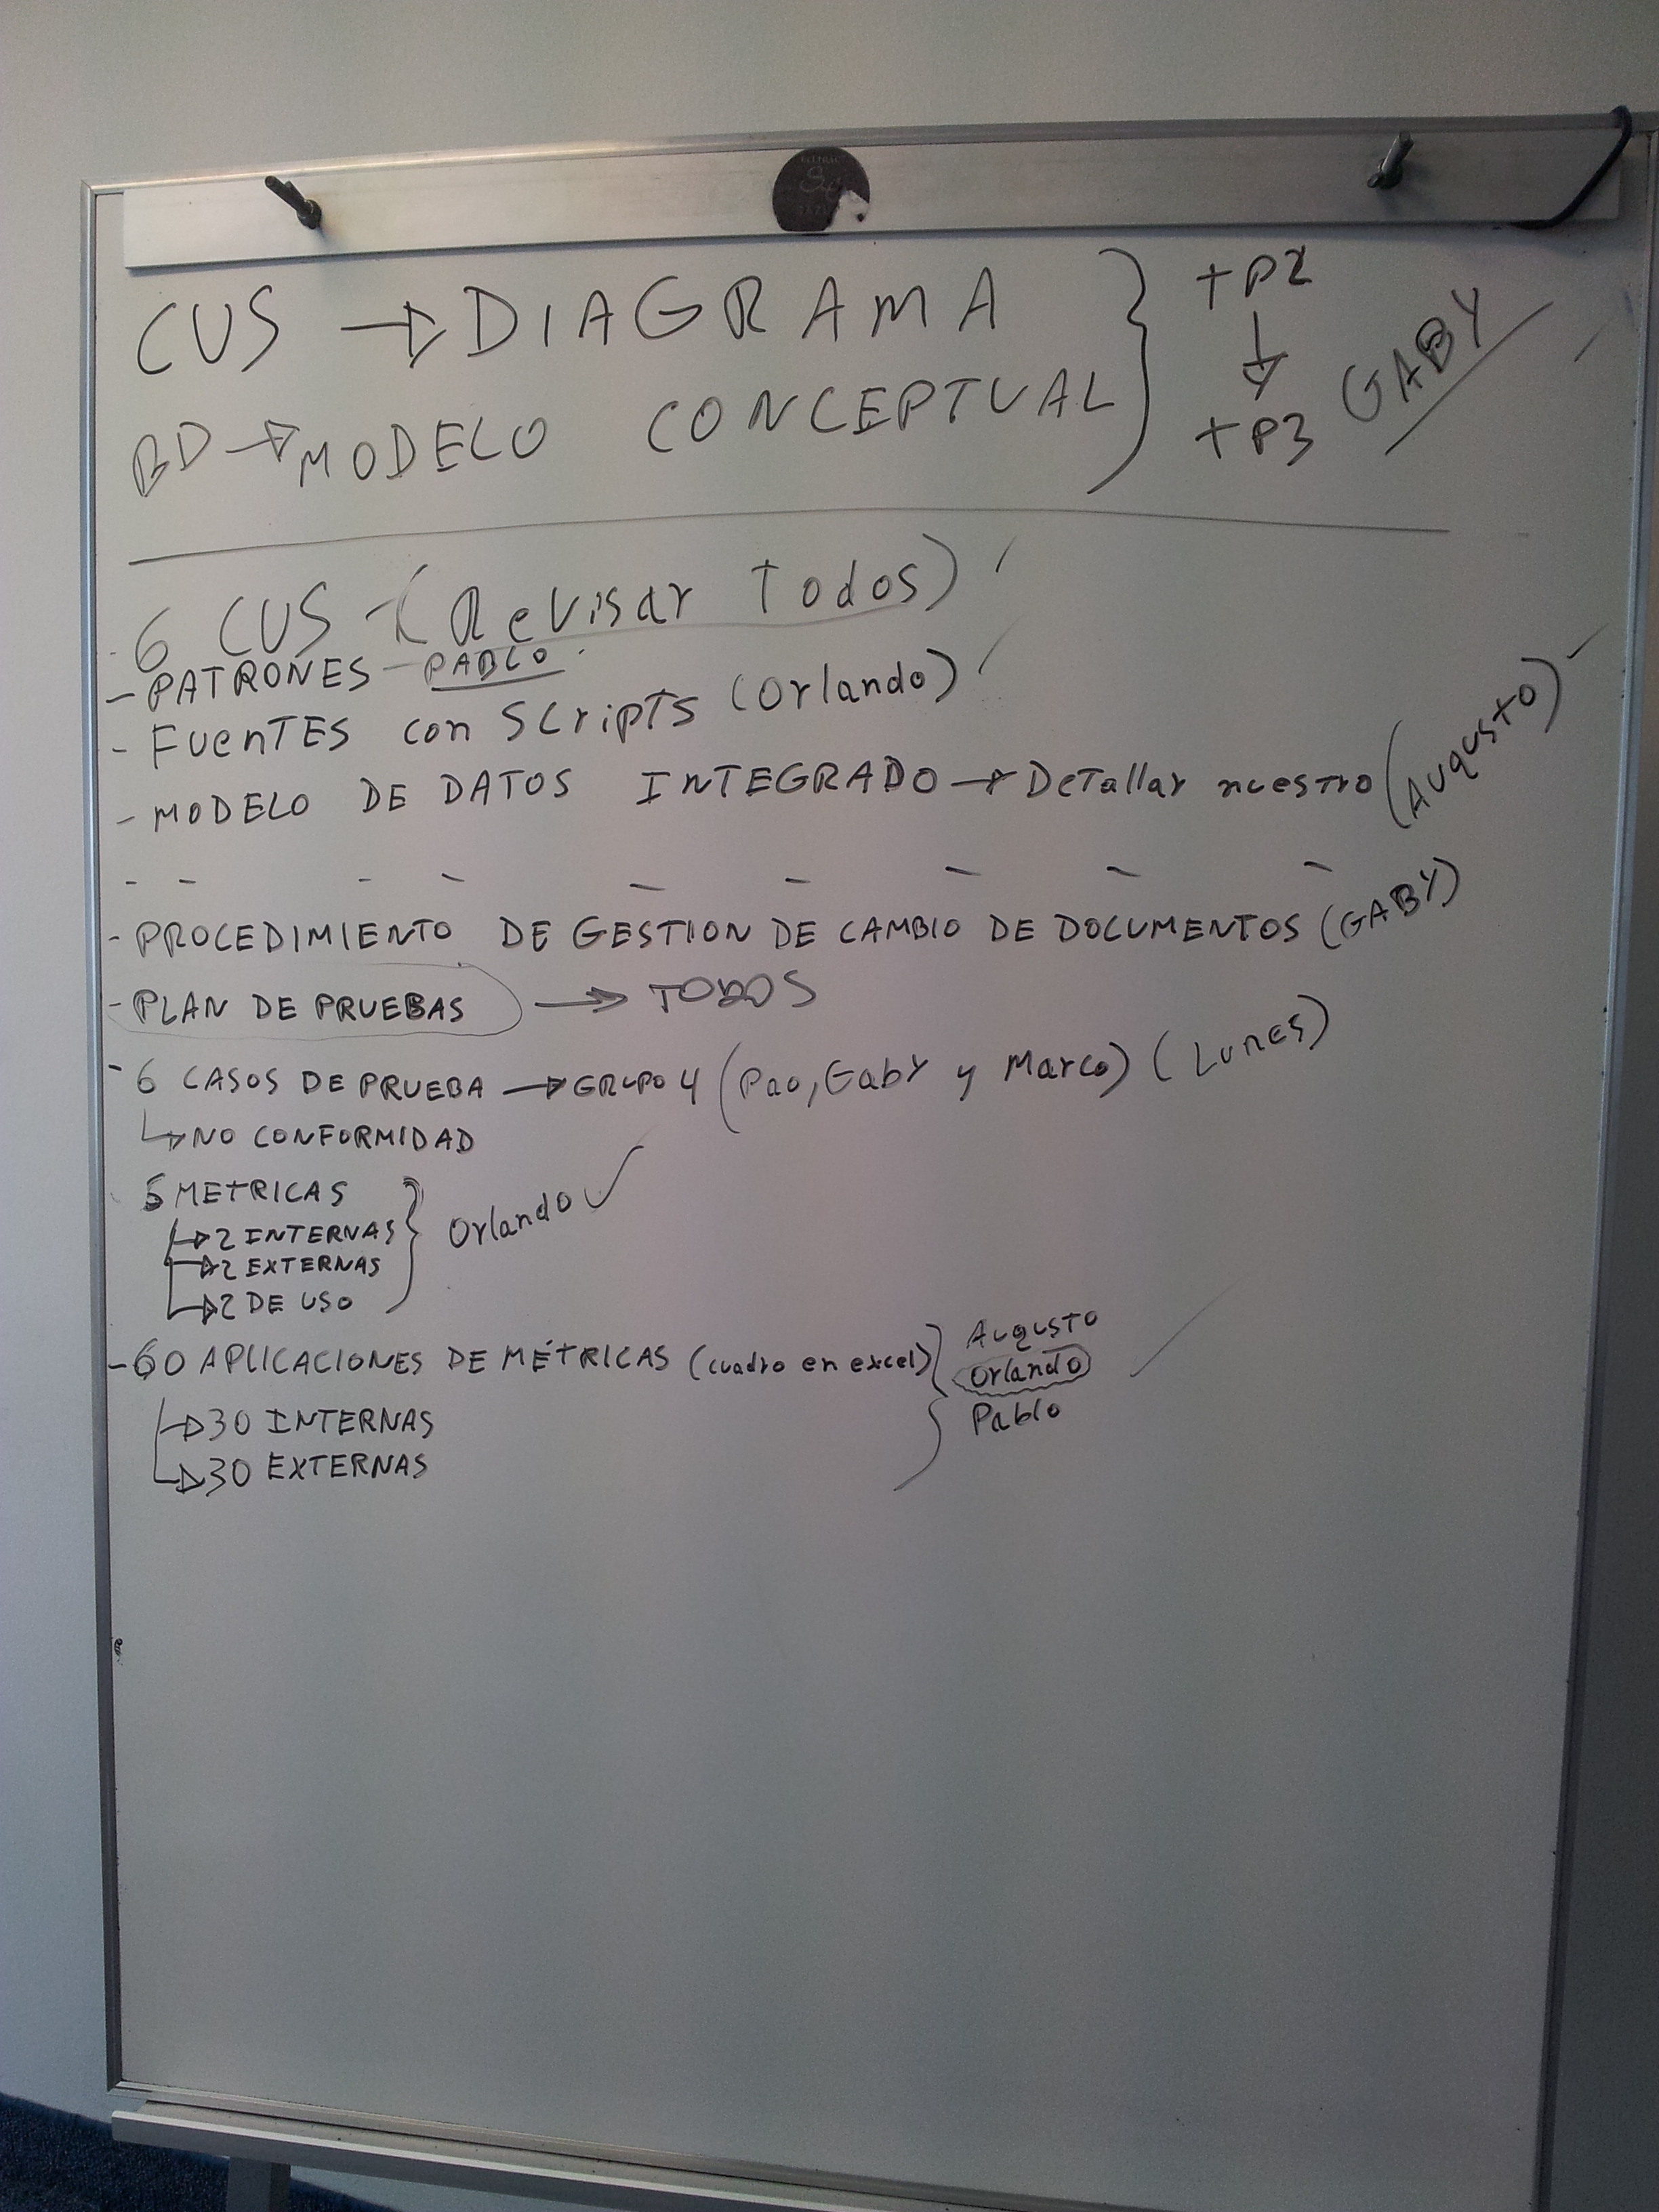 CUS → DIAGRAMA
BD → MODELO CONCEPTUAL
+P2
↓
+P3
GABY
6 CUS - (Revisar Todos)
- PATRONES - PABLO
- FUENTES con SCripTS (Orlando)
- MODELO DE DATOS INTEGRADO → DeTallar nuestro (AugusTo)
- PROCEDIMIENTO DE GESTION DE CAMBIO DE DOCUMENTOS (GABY)
- PLAN DE PRUEBAS → TODOS
- 6 CASOS DE PRUEBA → GRUPO 4 (Pao, Gaby y Marco) (LUNES)
↳ NO CONFORMIDAD
METRICAS
→ 2 INTERNAS
→ 2 EXTERNAS
→ 2 DE USO
Orlando ✓
- 60 APLICACIONES DE MÉTRICAS (cuadro en excel)
→ 30 INTERNAS
→ 30 EXTERNAS
AugusTo
Orlando
Pablo